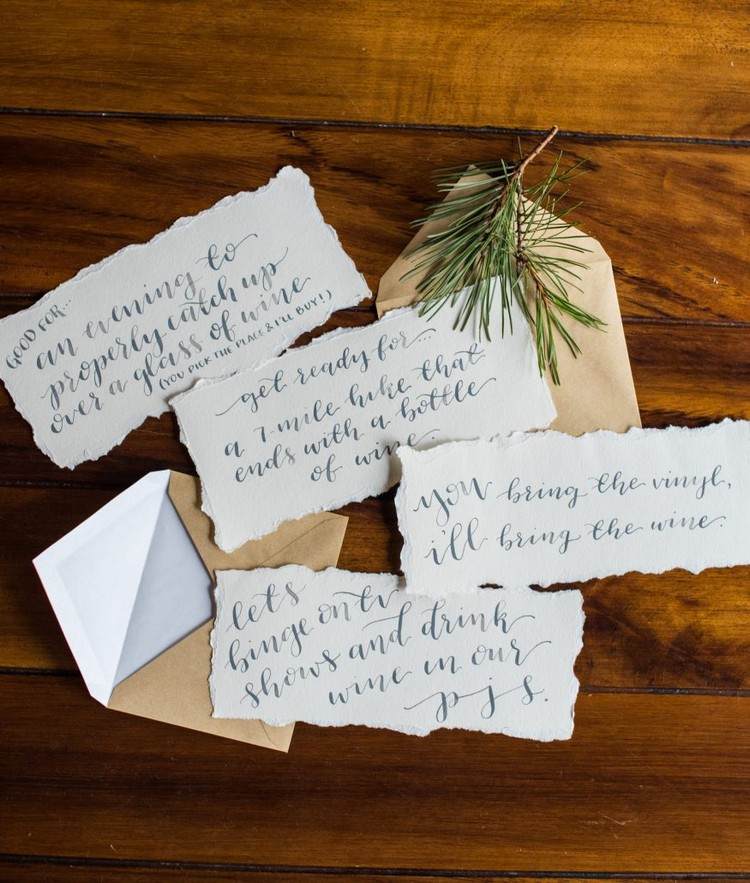 GOOD FOR...
an evening to
properly catch up
over a glass of wine
(YOU PICK THE PLACE & I'LL BUY!)
get ready for...
a 7-mile hike that
ends with a bottle
of wine.
you bring the vinyl,
i'll bring the wine.
lets
binge on tv
shows and drink
wine in our
pjs.